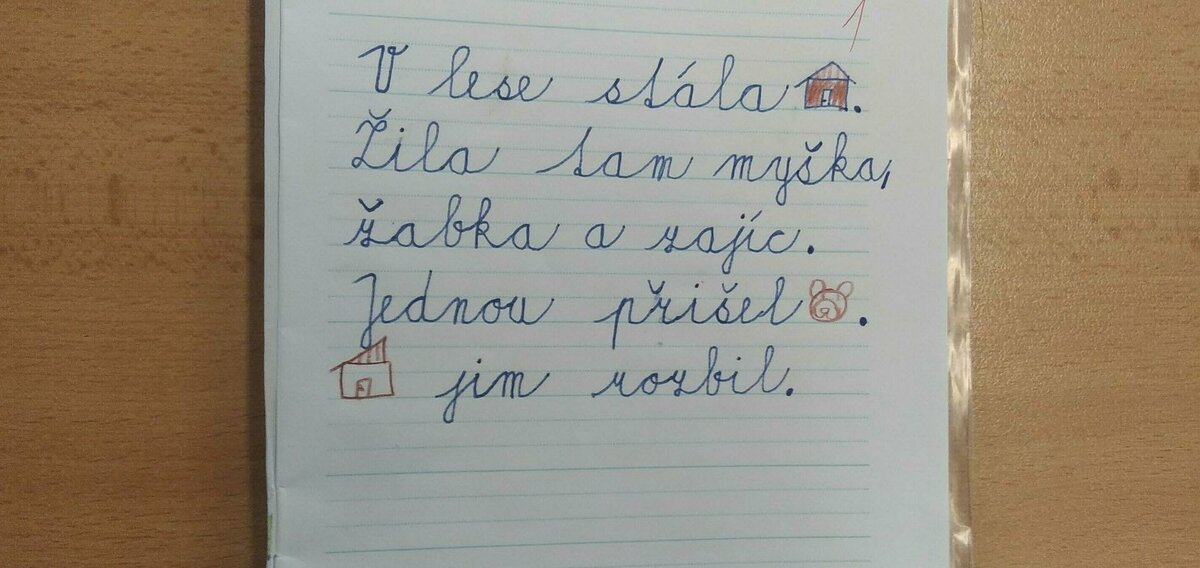 1
V lese stála .
Žila tam myška,
žabka a zajíc.
Jednou přišel .
jim rozbil.